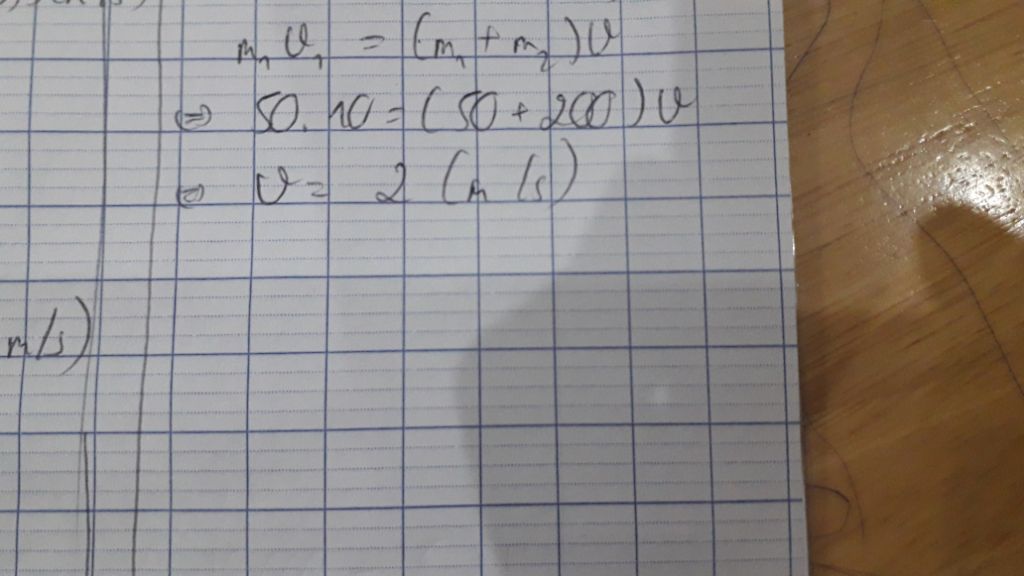 m₁ v₁ = (m₁ + m₂)v
⇔ 50.10 = (50 + 200)v
⇔ v = 2 (m/s)
m/s)